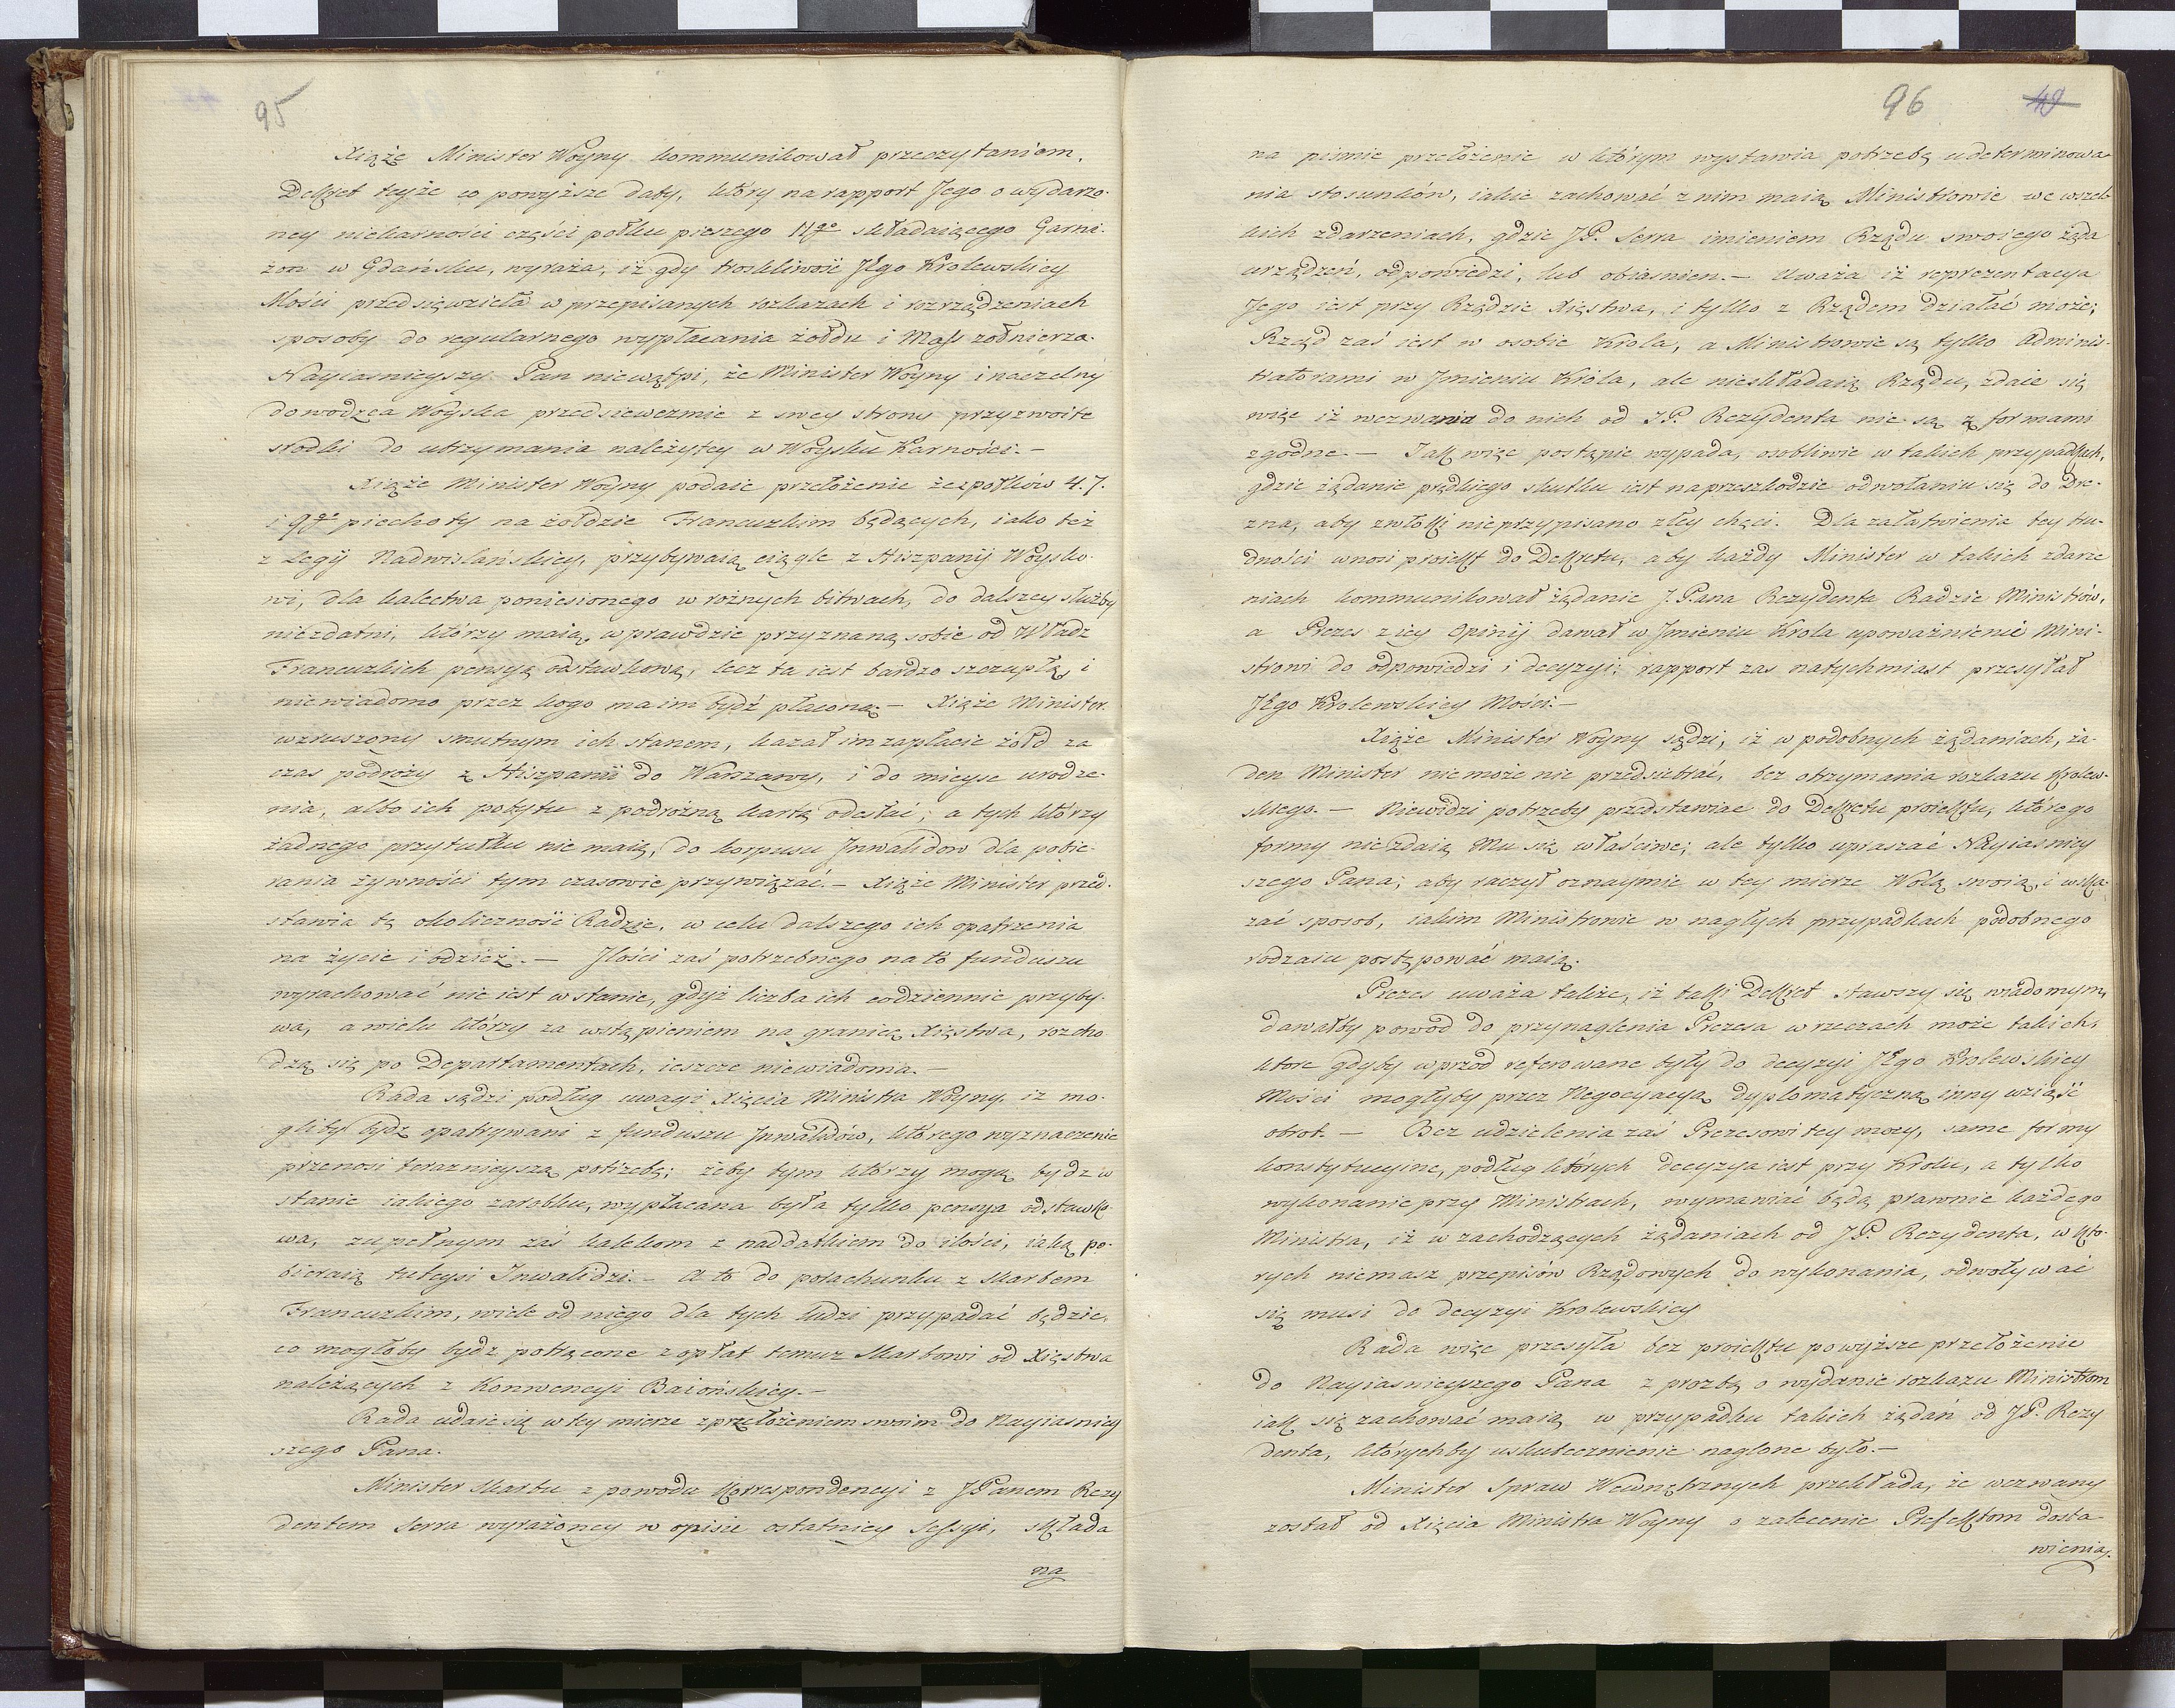 95
Xiąże Minister Woyny kommunikował przeczytaniem,
Dekret teyże co powyższe daty, który na rapport Jego o wydarzo-
ney niekarności części połku pieszego 11go składaiącego Garni-
zon w Gdańsku, wyraża, iż gdy troskliwość JEgo Krolewskiey
Mości przedsięwzieła w przepisanych rozkazach i rozrządzeniach
sposoby do regularnego wypłacania żołdu i Mass żołnierza.
Nayiasnieyszy Pan niewątpi, że Minister Woyny i naczelny
dowodzca Woyska przedsiewezmie z swey strony przyzwoite
srodki do utrzymania należytey w Woysku Karności.-
Xiąże Minister Woyny podaie przełożenie że z połków 4. 7.
i 9go piechoty na żołdzie Francuzkim będących, iako też
z Legij Nadwislańskiey, przybywaią ciągle z Hiszpanij Woysko-
wi, dla kalectwa poniesionego w rożnych bitwach, do dalszey służby
niezdatni, którzy maią, wprawdzie przyznaną sobie od Władz
Francuzkich pensyą odstawkową, lecz ta iest bardzo szczupłą, i
niewiadomo przez kogo ma im bydź płaconą.- Xiąże Minister
wzruszony smutnym ich stanem, kazał im zapłacic żołd za
czas podroży z Hiszpanii do Warszawy, i do mieysc urodze-
nia, albo ich pobytu z podróżną kartą odesłać; a tych którzy
żadnego przytułku nie maią, do korpusu Jnwalidow dla pobie-
rania żywności tym czasowie przywiązać.- Xiąże Minister przed-
stawia tę okoliczność Radzie, w celu dalszego ich opatrzenia
na życie i odzież.- Jlości zaś potrzebnego na to funduszu
wyrachować nie iest w stanie, gdyż liczba ich codziennie przyby-
wa, a wielu którzy za wstąpieniem na granicę Xięstwa, rozcho
dzą się po Departamentach, ieszcze niewiadoma.-
Rada sądzi podług uwagi Xięcia Ministra Woyny, iż mo-
gliby bydź opatrywani z funduszu Jnwalidów, którego wyznaczenie
przenosi teraznieyszą potrzebę; żeby tym którzy mogą bydz w
stanie iakiego zarobku, wypłacana była tylko pensya odstawko
wa, zupełnym zaś kalekom z naddatkiem do ilości, iaką po-
bieraią tuteysi Jnwalidzi.- A to do porachunku z skarbem
Francuzkim, wiele od niego dla tych ludzi przypadać będzie,
co mogłoby bydz potrącone z opłat temuz skarbowi od Xięstwa
należących z Konwencyi Baiońskiey.-
Rada udaie się w tey mierze z przełożeniem swoim do Nayiasniey
szego Pana.
Minister Skarbu z powodu Korrespondencyi z JPanem Rezy
dentem Serra wyrażoney w opisie ostatniey Sessyi, składa
na
96 49
na pismie przełożenie w którym wystawia potrzebę udeterminowa-
nia stosunków, iakie zachować z nim maią Ministrowie we wszel-
kich zdarzeniach, gdzie JP. Serra imieniem Rządu swoiego żąda
urządzeń, odpowiedzi, lub obiasnien.- Uważa iż reprezentacya
Jego iest przy Rządzie Xięstwa, i tylko z Rządem działać może;
Rząd zaś iest w osobie Krola, a Ministrowie są tylko Adminis-
tratorami w Jmieniu Króla, ale nieskładaią Rządu, zdaie się
więc iż wezwania do nich od JP. Rezydenta nie są z formami
zgodne.- Jak więc postąpic wypada, osobliwie w takich przypadkach,
gdzie żądanie prędkiego skutku iest na przeszkodzie odwołaniu się do Dre-
zna, aby zwłoki nieprzypisano złey chęci. Dla załatwienia tey tru-
dności wnosi proiekt do Dekretu, aby każdy Minister w takich zdarze
niach kommunikował żądanie J.Pana Rezydenta Radzie Ministrów,
a Prezes z iey Opinij dawał w Jmieniu Krola upoważnienie Mini-
strowi do odpowiedzi i decyzyi; rapport zas natychmiast przesyłał
JEgo Krolewskiey Mości.-
Xiąże Minister Woyny sądzi, iż w podobnych żądaniach, ża-
den Minister nie może nic przedsiebrać, bez otrzymania rozkazu Krolew-
skiego.- Niewidzi potrzeby przedstawiac do Dekretu proiektu, którego
formy niezdaią Mu się właściwe; ale tylko upraszać Nayiasniey
szego Pana; aby raczył oznaymic w tey mierze Wolą swoią, i wska-
zać sposob, iakim Ministrowie w nagłych przypadkach podobnego
rodzaiu postępować maią.
Prezes uważa także, iż taki Dekret stawszy się wiadomym,
dawałby powod do przynaglenia Prezesa w rzeczach może takich,
ktore gdyby wprzod referowane były do decyzyi JEgo Krolewskiey
Mości mogłyby przez Negocyacyą dyplomatyczną inny wziąść
obrot.- Bez udzielenia zaś Prezesowi tey mocy, same formy
konstytucyine, podług których decyzya iest przy Krolu, a tylko
wykonanie przy Ministrach, wymawiać będą prawnie każdego
Ministra, iż w zachodzących żądaniach od JP. Rezydenta, w kto-
rych niemasz przepisów Rządowych do wykonania, odwoływać
się musi do decyzyi Krolewskiey
Rada więc przesyła bez proiektu powyższe przełożenie
do Nayiasnieyszego Pana z prozbą o wydanie rozkazu Ministrom
iak się zachować maią w przypadku takich żądań od JP. Rezy
denta, którychby uskutecznienie naglone było.-
Minister Spraw Wewnętrznych przekłada, że wezwany
został od Xięcia Ministra Woyny o zalecenie Prefektom dosta-
wienia